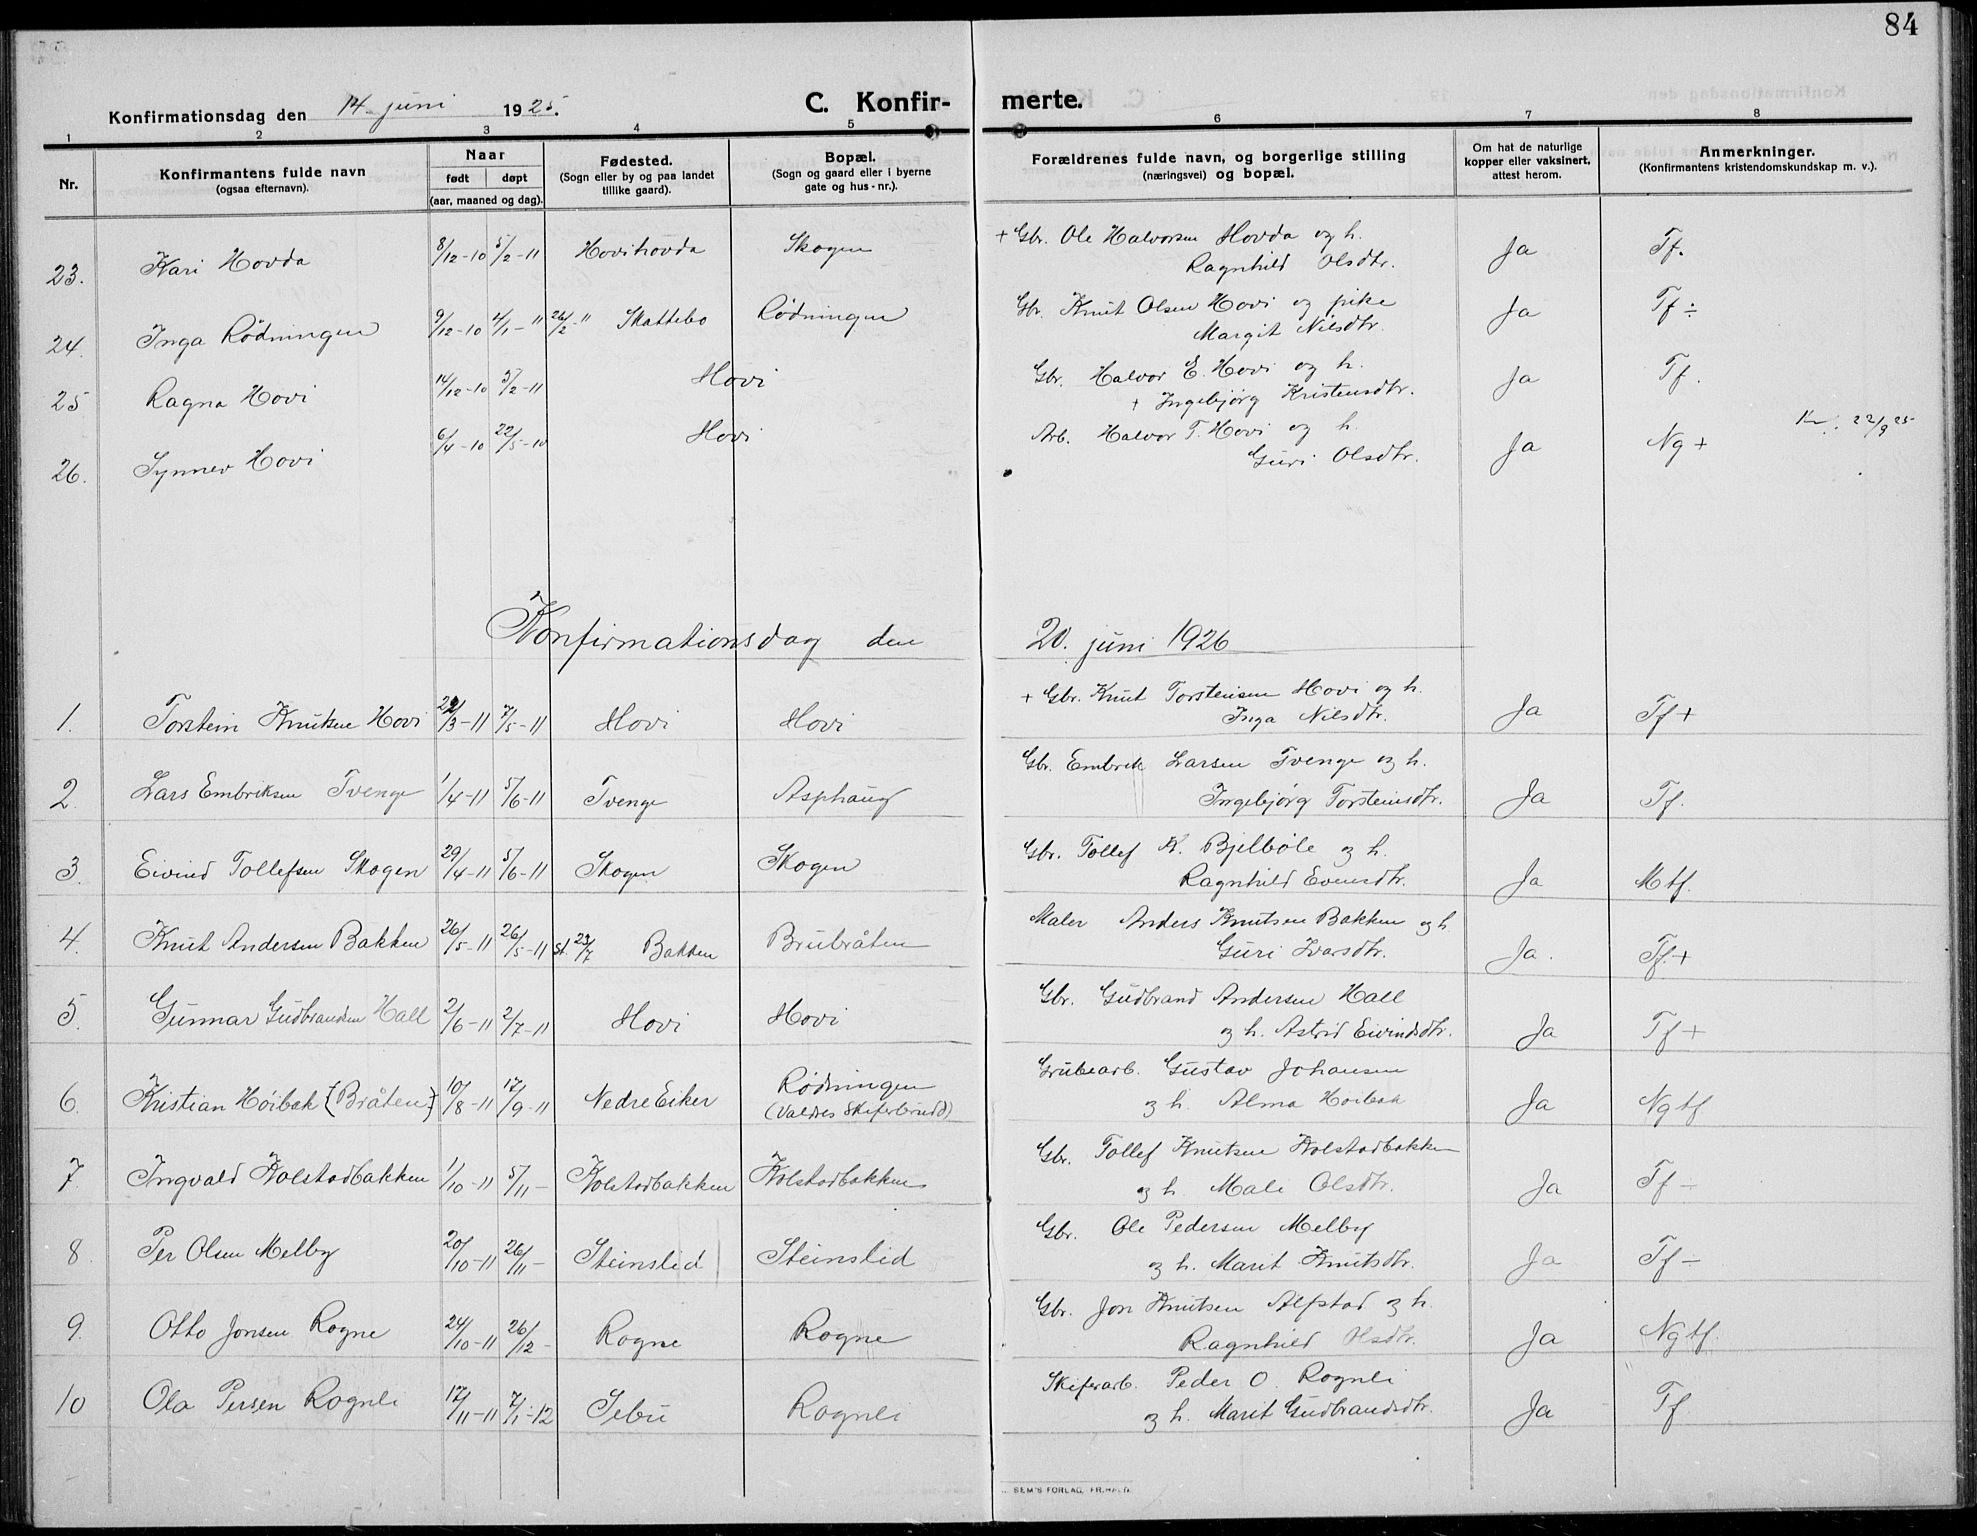 84
Konfirmationsdag den 14. juni 1925.
C. Konfirmerte.
1 2 3 4 5 6 7 8
Nr.
Konfirmantens fulde navn (ogsaa efternavn).
Naar født døpt (aar, maaned og dag).
Fødested. (Sogn eller by og paa landet tillike gaard).
Bopæl. (Sogn og gaard eller i byerne gate og hus-nr.).
Forældrenes fulde navn, og borgerlige stilling (næringsvei) og bopæl.
Om hat de naturlige kopper eller vaksinert, attest herom.
Anmerkninger. (Konfirmantens kristendomskundskap m. v.).
23. Kari Hovda 8/12-10 5/2-11 Hovihovda Skogen + Gbr. Ole Halvorsen Hovda og h. Ragnhild Olsdtr. Ja Tf.
24. Inga Rødningen 9/12-10 4/1-" 26/2-" Skattebo Rødningen Gbr. Knut Olsen Hovi og pike Margit Nilsdtr. Ja Tf ÷
25 Ragna Hovi 14/12-10 5/2-11 Hovi Gbr. Halvor E. Hovi og h. + Ingebjørg Kristensdtr. Ja Tf.
26. Synnev Hovi 6/4-10 22/5-10 Hovi Arb. Halvor T. Hovi og h. Guri Olsdtr. Ja Ng + 22/9 25
Konfirmationsdag den 20. juni 1926
1. Torstein Knutsen Hovi 22/3-11 7/5-11 Hovi Hovi + Gbr. Knut Torsteinsen Hovi og h. Inga Nilsdtr. Ja Tf +
2. Lars Embriksen Tvenge 1/4-11 5/6-11 Tvenge Asphaug Gbr. Embrik Larsen Tvenge og h. Ingebjørg Torsteinsdtr. Ja Tf.
3. Eivind Tollefsen Skogen 29/4-11 5/6-11 Skogen Skogen Gbr. Tollef K. Bjelbøle og h. Ragnhild Evensdtr. Ja Mtf.
4. Knut Andersen Bakken 26/5-11 26/5-11 st. 23/7 Bakken Brubråten Maler Anders Knutsen Bakken og h Guri Ivarsdtr. Ja. Tf. +
5. Gunnar Gudbrandsen Hall 2/6-11 2/7-11 Hovi Hovi Gbr. Gudbrand Andersen Hall og h. Astrid Eivindsdtr. Ja Tf +
6. Kristian Höibak (Bråten) 10/8-11 17/9-11 Nedre Eiker Rødningen (Valdres Skiferbrudd) Grubearb. Gustav Johansen og h. Alma Hoibak Ja Ngtf
7. Ingvald Kolstadbakken 1/10-11 5/11- Kolstadbakken Kolstadbakken Gbr. Tollef Knutsen Kolstadbakken og h. Mali Olsdtr. Ja Tf -
8. Per Olsen Melby 20/10-11 26/11- Steinslid Steinslid Gbr. Ole Pedersen Melby og h. Marit Knutsdtr. Ja Tf -
9. Otto Jonsen Rogne 24/10-11 26/12- Rogne Rogne Gbr. Jon Knutsen Alfstad og h. Ragnhild Olsdtr. Ja Ngtf.
10 Ola Persen Rognli 17/11-11 7/1-12 Sebu Rognli Skiferarb. Peder O. Rognli og h. Marit Gudbrandsdtr. Ja Tf
SEM'S FORLAG, FR.HALD.